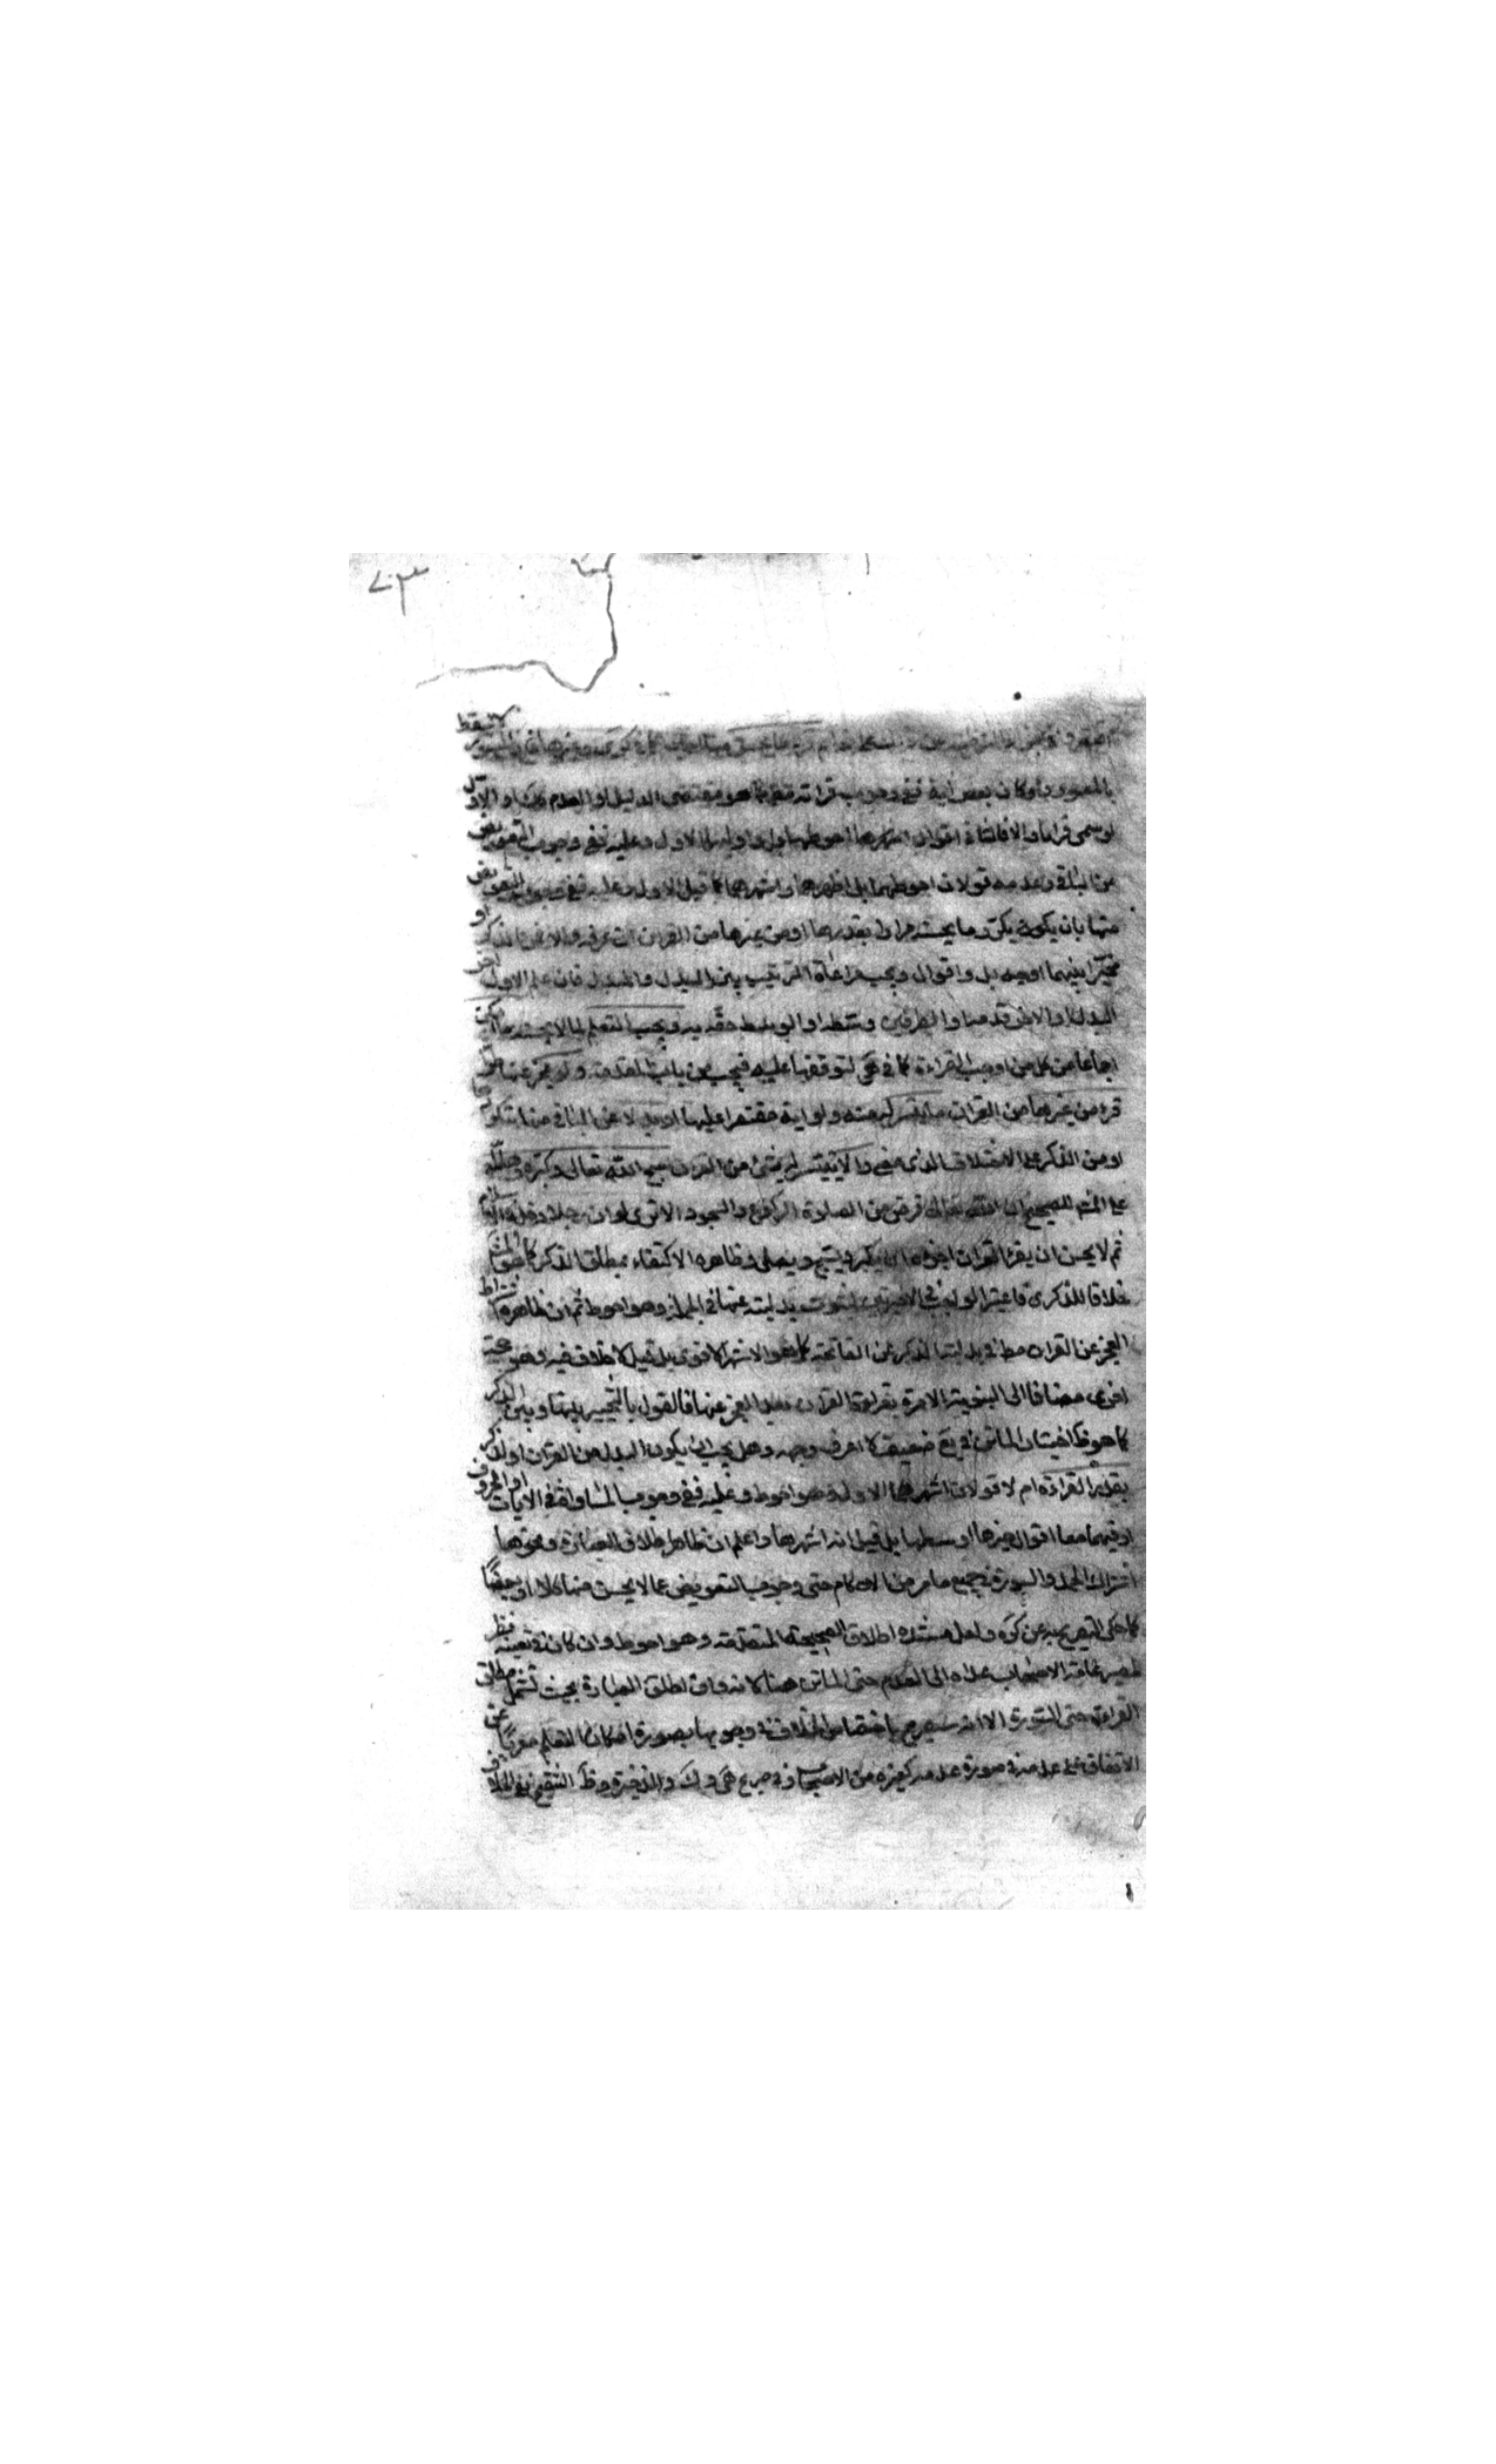 ٧٣
لا يسقط
بالمعسور ولو كان بعض اية ففي وجوب قرائته مقتضى الدليل او العدم والاول
لو سمى قرانا والا فالثالثة اقوال اشهرها احوطها بل واولها الاول وعليه ففي وجوب التعويض
من الباقي وعدمه قولان احوطهما بل اظهرهما واشهرهما كما قيل الاول وعليه ففي وجوب التعويض
منها بان يكرر ما يحسنه مرارا بقدرها او من غيرها من القران ان عرفه والا فمن الذكر او
مخيرا بينهما اوجه بل واقوال ويجب مراعاة الترتيب بين البدل والمبدل فان علم الاول اخر
البدل او الاخر قدمه او الطرفين وسطه او الوسط حفه به ويجب التعلم لما لا يحسنه منها
اجماعا من كل من اوجب القراءة كما في هى لتوقفها عليه فيجب من باب المقدمة ولو عجز عنها
قرء من غيرها من القران ما تيسر له منه ولو اية مقتصرا عليها او بدلا عن الباقي منها
او من الذكر على الاختلاف الذي مضى والا يتيسر له شيء من القران سبح الله تعالى وكبره وهلله
على المش للصحيح ان الله تعالى فرض من الصلوة الركوع والسجود الا ترى لو ان رجلا دخل في الاسلام
ثم لا يحسن ان يقرء القران اجزءه ان يكبر ويسبح ويصلي وظاهره الاكتفاء بمطلق الذكر كما هو المش
خلافا للذكرى فاعتبر الواجب في الاخيرتين لثبوت بدليته عنها في الجملة وهو احوط ثم ان ظاهره اشتراط
العجز عن القران مط في بدلية الذكر عن الفاتحة كما هو الاشهر الاقوى بل قيل لا خلاف فيه وهو حجة
اخرى مضافا الى النبوية الامرة بقراءة القران بعد العجز عنها فالقول بالتخيير بينها وبين الذكر
كما هو ظ اختيار الماتن في يع ضعيف لا اعرف وجهه وهل يجب ان يكون البدل من القران او الذكر
بقدر القراءة ام لا قولان اشهرهما الاول وهو احوط وعليه ففي وجوب المساواة في الايات او الحروف
او فيهما معا اقوال خيرها اوسطها بل قيل انه اشهرها واعلم ان ظاهر اطلاق العبارة ونحوها
اشتراك الحمد والسورة في جميع ما مر من الاحكام حتى وجوب التعويض عما لا يحسن منها كلا او بعضا
كما حكى التصريح به عن كره ولعل مستنده اطلاق الصحيحة المتقدمة وهو احوط وان كان في تعينه نظر
لمصير عامة الاصحاب عداه الى العدم حتى الماتن هنا لانه وان اطلق العبارة بحيث تشمل مطلق
القراءة حتى السورة الا انه سيصرح باختصاص الخلاف في وجوبها بصورة امكان التعلم معربا عن
الاتفاق على عدمه في صورة عدمه كغيره من الاصحاب وفي صريح هى وك والذخيرة وظ التنقيح نفي الخلاف